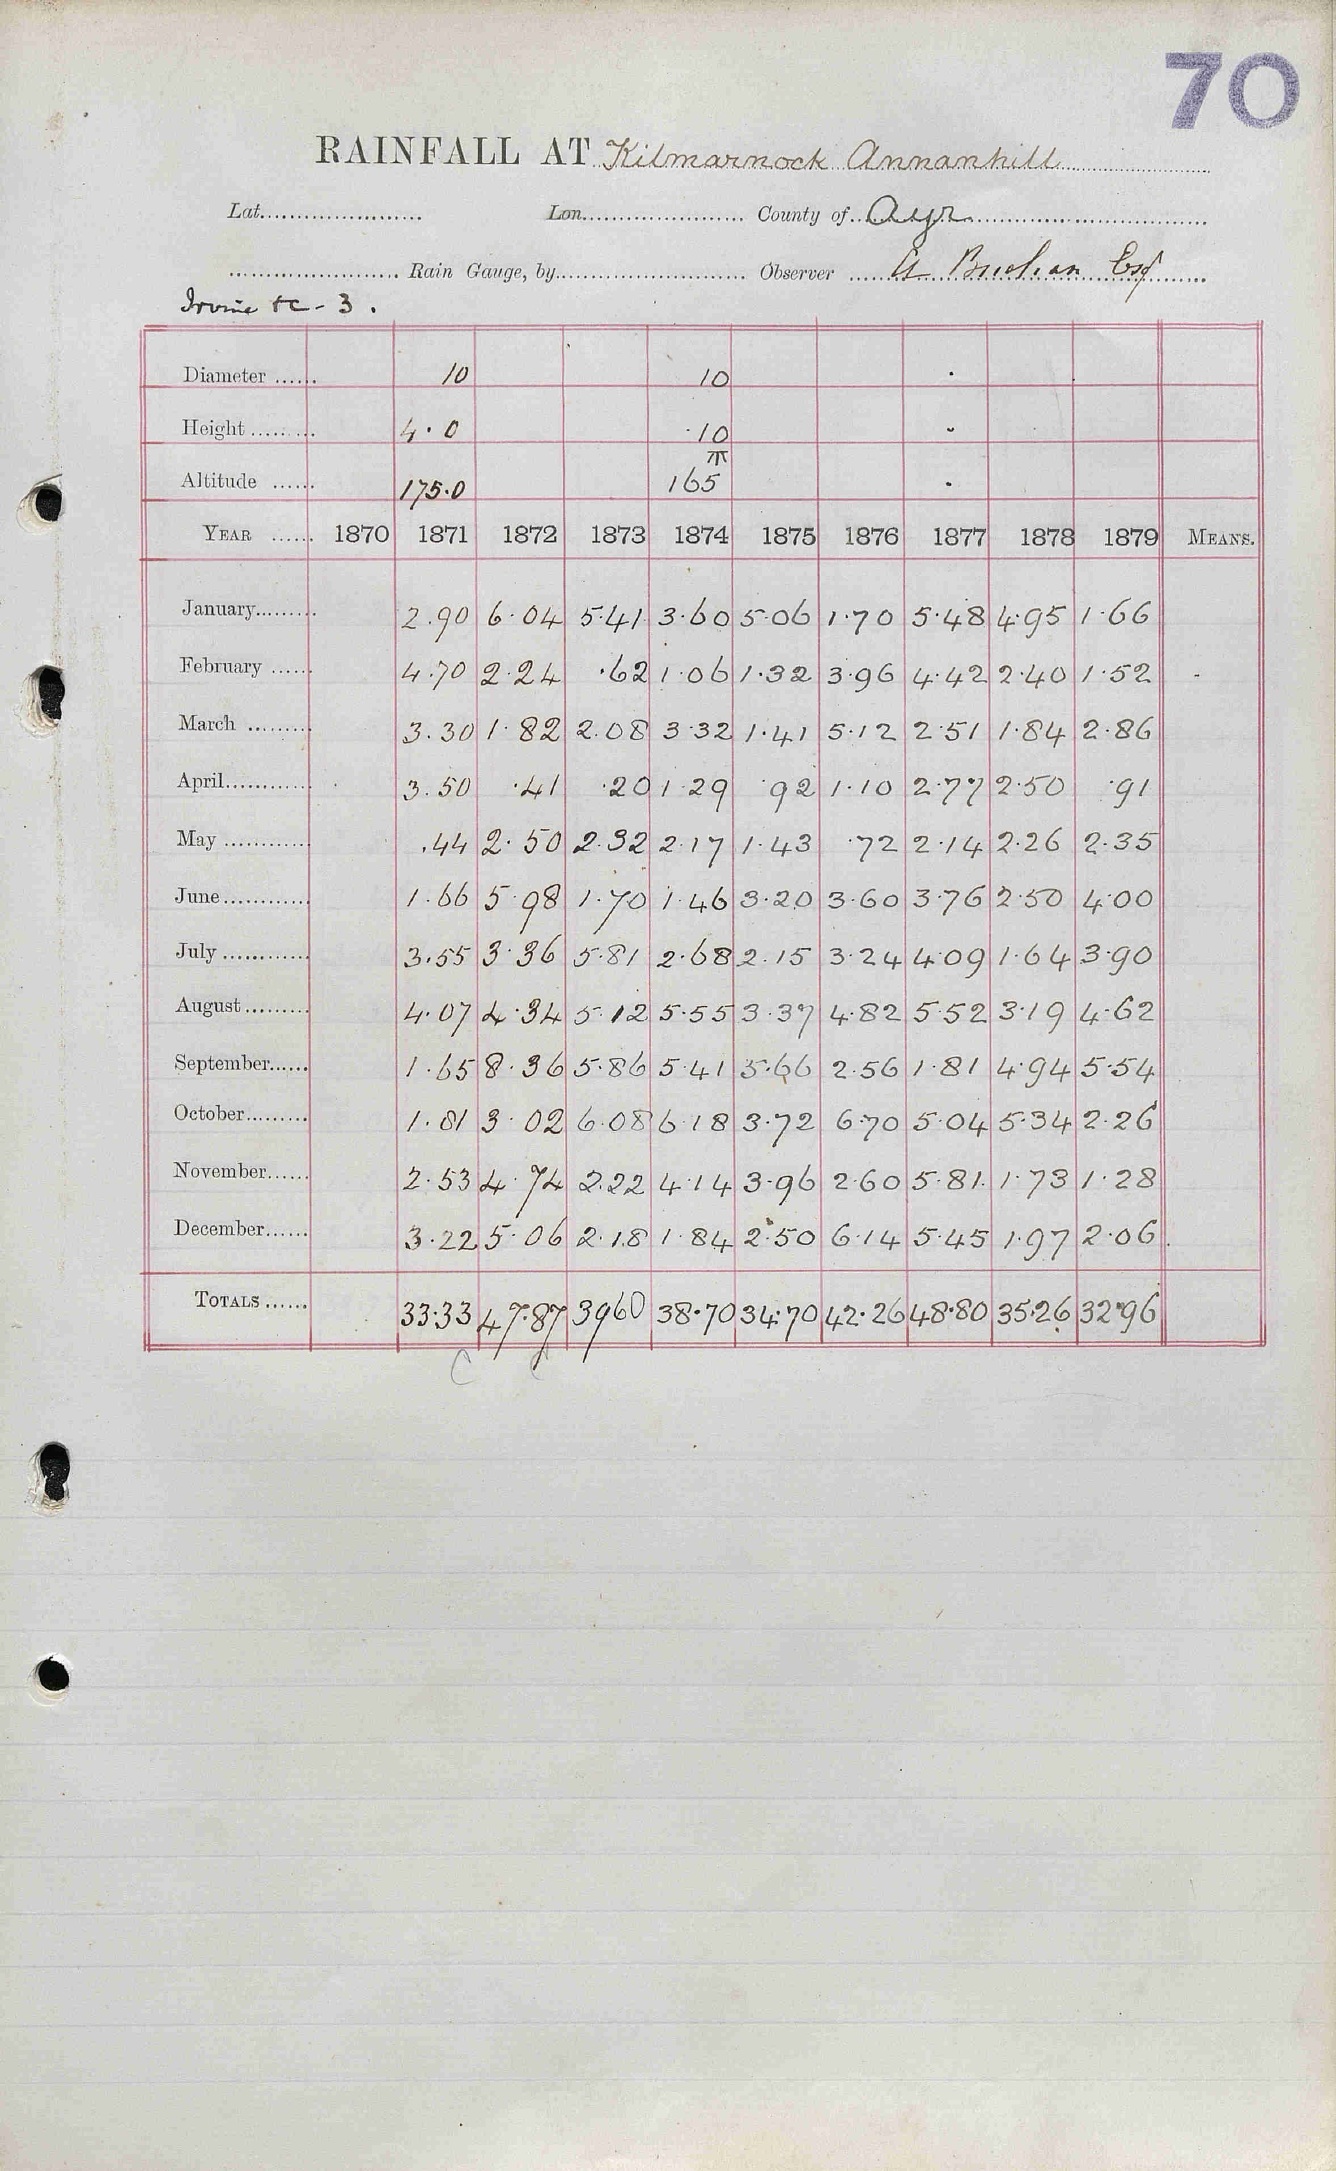 70
RAINFALL AT Kilmarnock Annanhill
Lat. Lon. County of Ayr
Rain Gauge, by Observer A Buchan Esq
Irvine &c - 3.
Diameter 10 10
Height 4.0 .10
Altitude 175.0 165
YEAR 1870 1871 1872 1873 1874 1875 1876 1877 1878 1879 MEANS.
January 2.90 6.04 5.41 3.60 5.06 1.70 5.48 4.95 1.66
February 4.70 2.24 .62 1.06 1.32 3.96 4.42 2.40 1.52
March 3.30 1.82 2.08 3.32 1.41 5.12 2.51 1.84 2.86
April 3.50 .41 .20 1.29 .92 1.10 2.77 2.50 .91
May .44 2.50 2.32 2.17 1.43 .72 2.14 2.26 2.35
June 1.66 5.98 1.70 1.46 3.20 3.60 3.76 2.50 4.00
July 3.55 3.36 5.81 2.68 2.15 3.24 4.09 1.64 3.90
August 4.07 4.34 5.12 5.55 3.37 4.82 5.52 3.19 4.62
September 1.65 8.36 5.86 5.41 5.66 2.56 1.81 4.94 5.54
October 1.81 3.02 6.08 6.18 3.72 6.70 5.04 5.34 2.26
November 2.53 4.74 2.22 4.14 3.96 2.60 5.81 1.73 1.28
December 3.22 5.06 2.18 1.84 2.50 6.14 5.45 1.97 2.06
TOTALS 33.33 47.87 3960 38.70 34.70 42.26 48.80 35.26 32.96